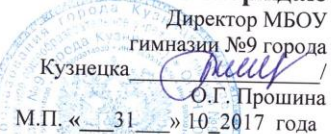 Директор МБОУ
гимназии №9 города
Кузнецка____________/
О.Г. Прошина
М.П. «___31___» 10_2017 года